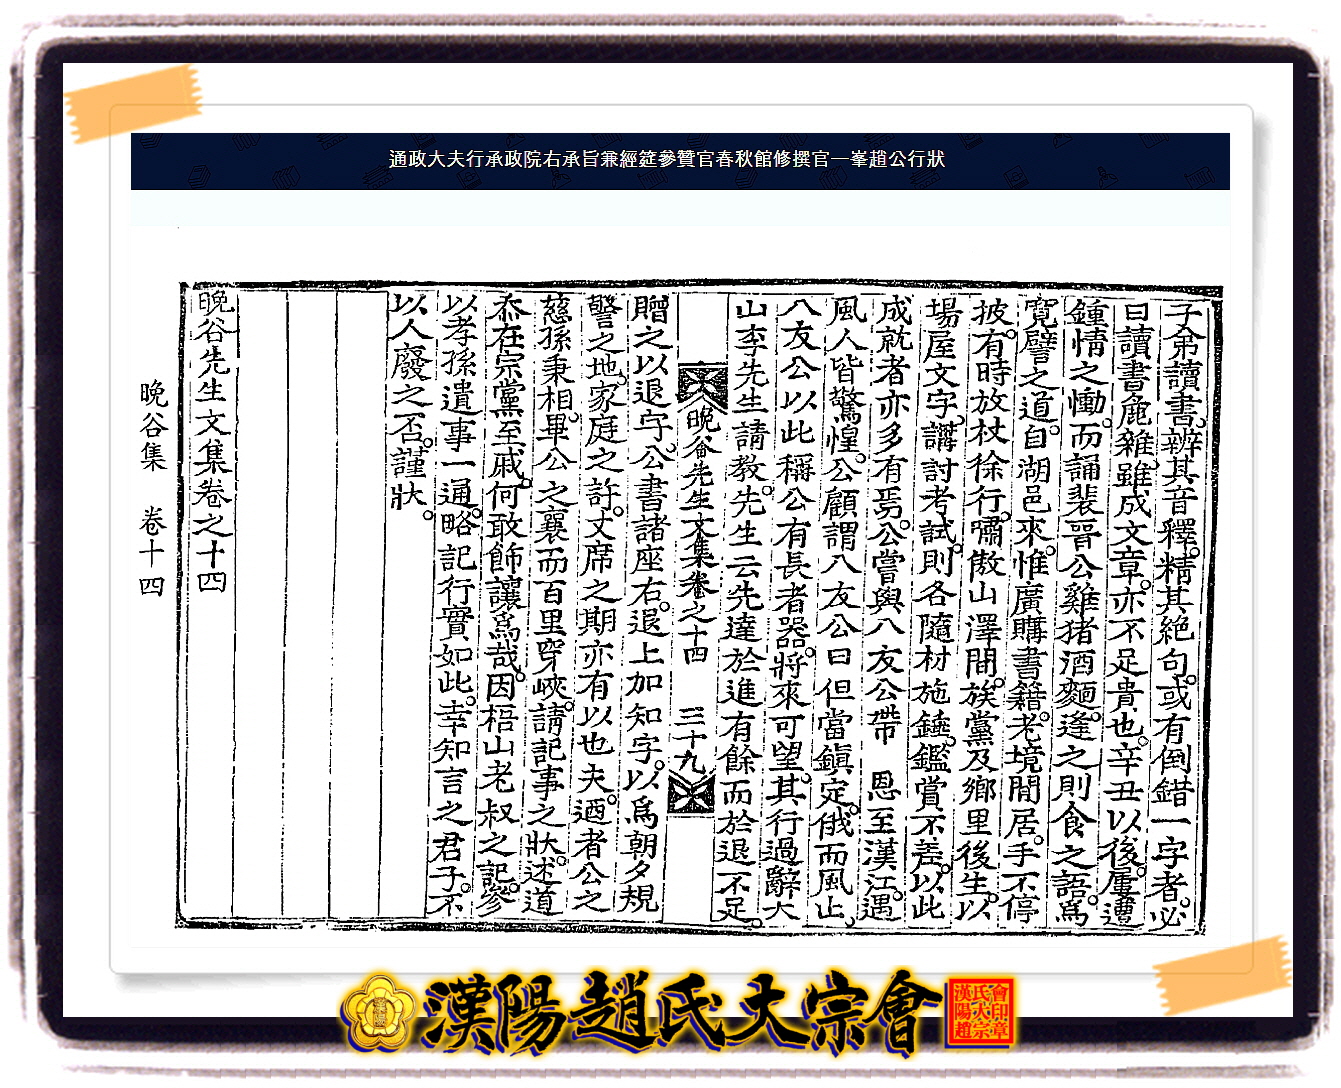 通政大夫行承政院右承旨兼經筵參贊官春秋館修撰官一峯趙公行狀
子弟讀書。辨其音釋。精其絶句。或有倒錯一字者。必
曰讀書麁雜。雖成文章。亦不足貴也。辛丑以後。屢遭
鍾情之慟。而誦裴晋公雞猪酒麵。逢之則食之語。爲
寬譬之道。自湖邑來。惟廣購書籍。老境閒居。手不停
披。有時放杖徐行。嘯傲山澤間。族黨及鄉里後生。以
場屋文字。講討考試。則各隨材施錘。鑑賞不差。以此
成就者亦多有焉。公嘗與八友公帶 恩至漢江。遇
風人皆驚惶。公顧謂八友公曰但當鎭定。俄而風止。
八友公以此稱公有長者器。將來可望。其行過辭大
山李先生請教。先生云先達於進有餘而於退不足。
晩谷先生文集卷之十四 三十九
贈之以退字。公書諸座右。退上加知字。以爲朝夕規
警之地。家庭之許。丈席之期亦有以也夫。迺者公之
慈孫秉相。畢公之襄而百里穿峽。請記事之狀。述道
忝在宗黨至戚。何敢飾讓爲哉。因梧山老叔之記。參
以孝孫遺事一通。略記行實如此。幸知言之君子。不
以人廢之否。謹狀。
晩谷先生文集卷之十四
晩谷集 卷十四
漢陽趙氏大宗會
漢陽
漢陽趙氏大宗會印章